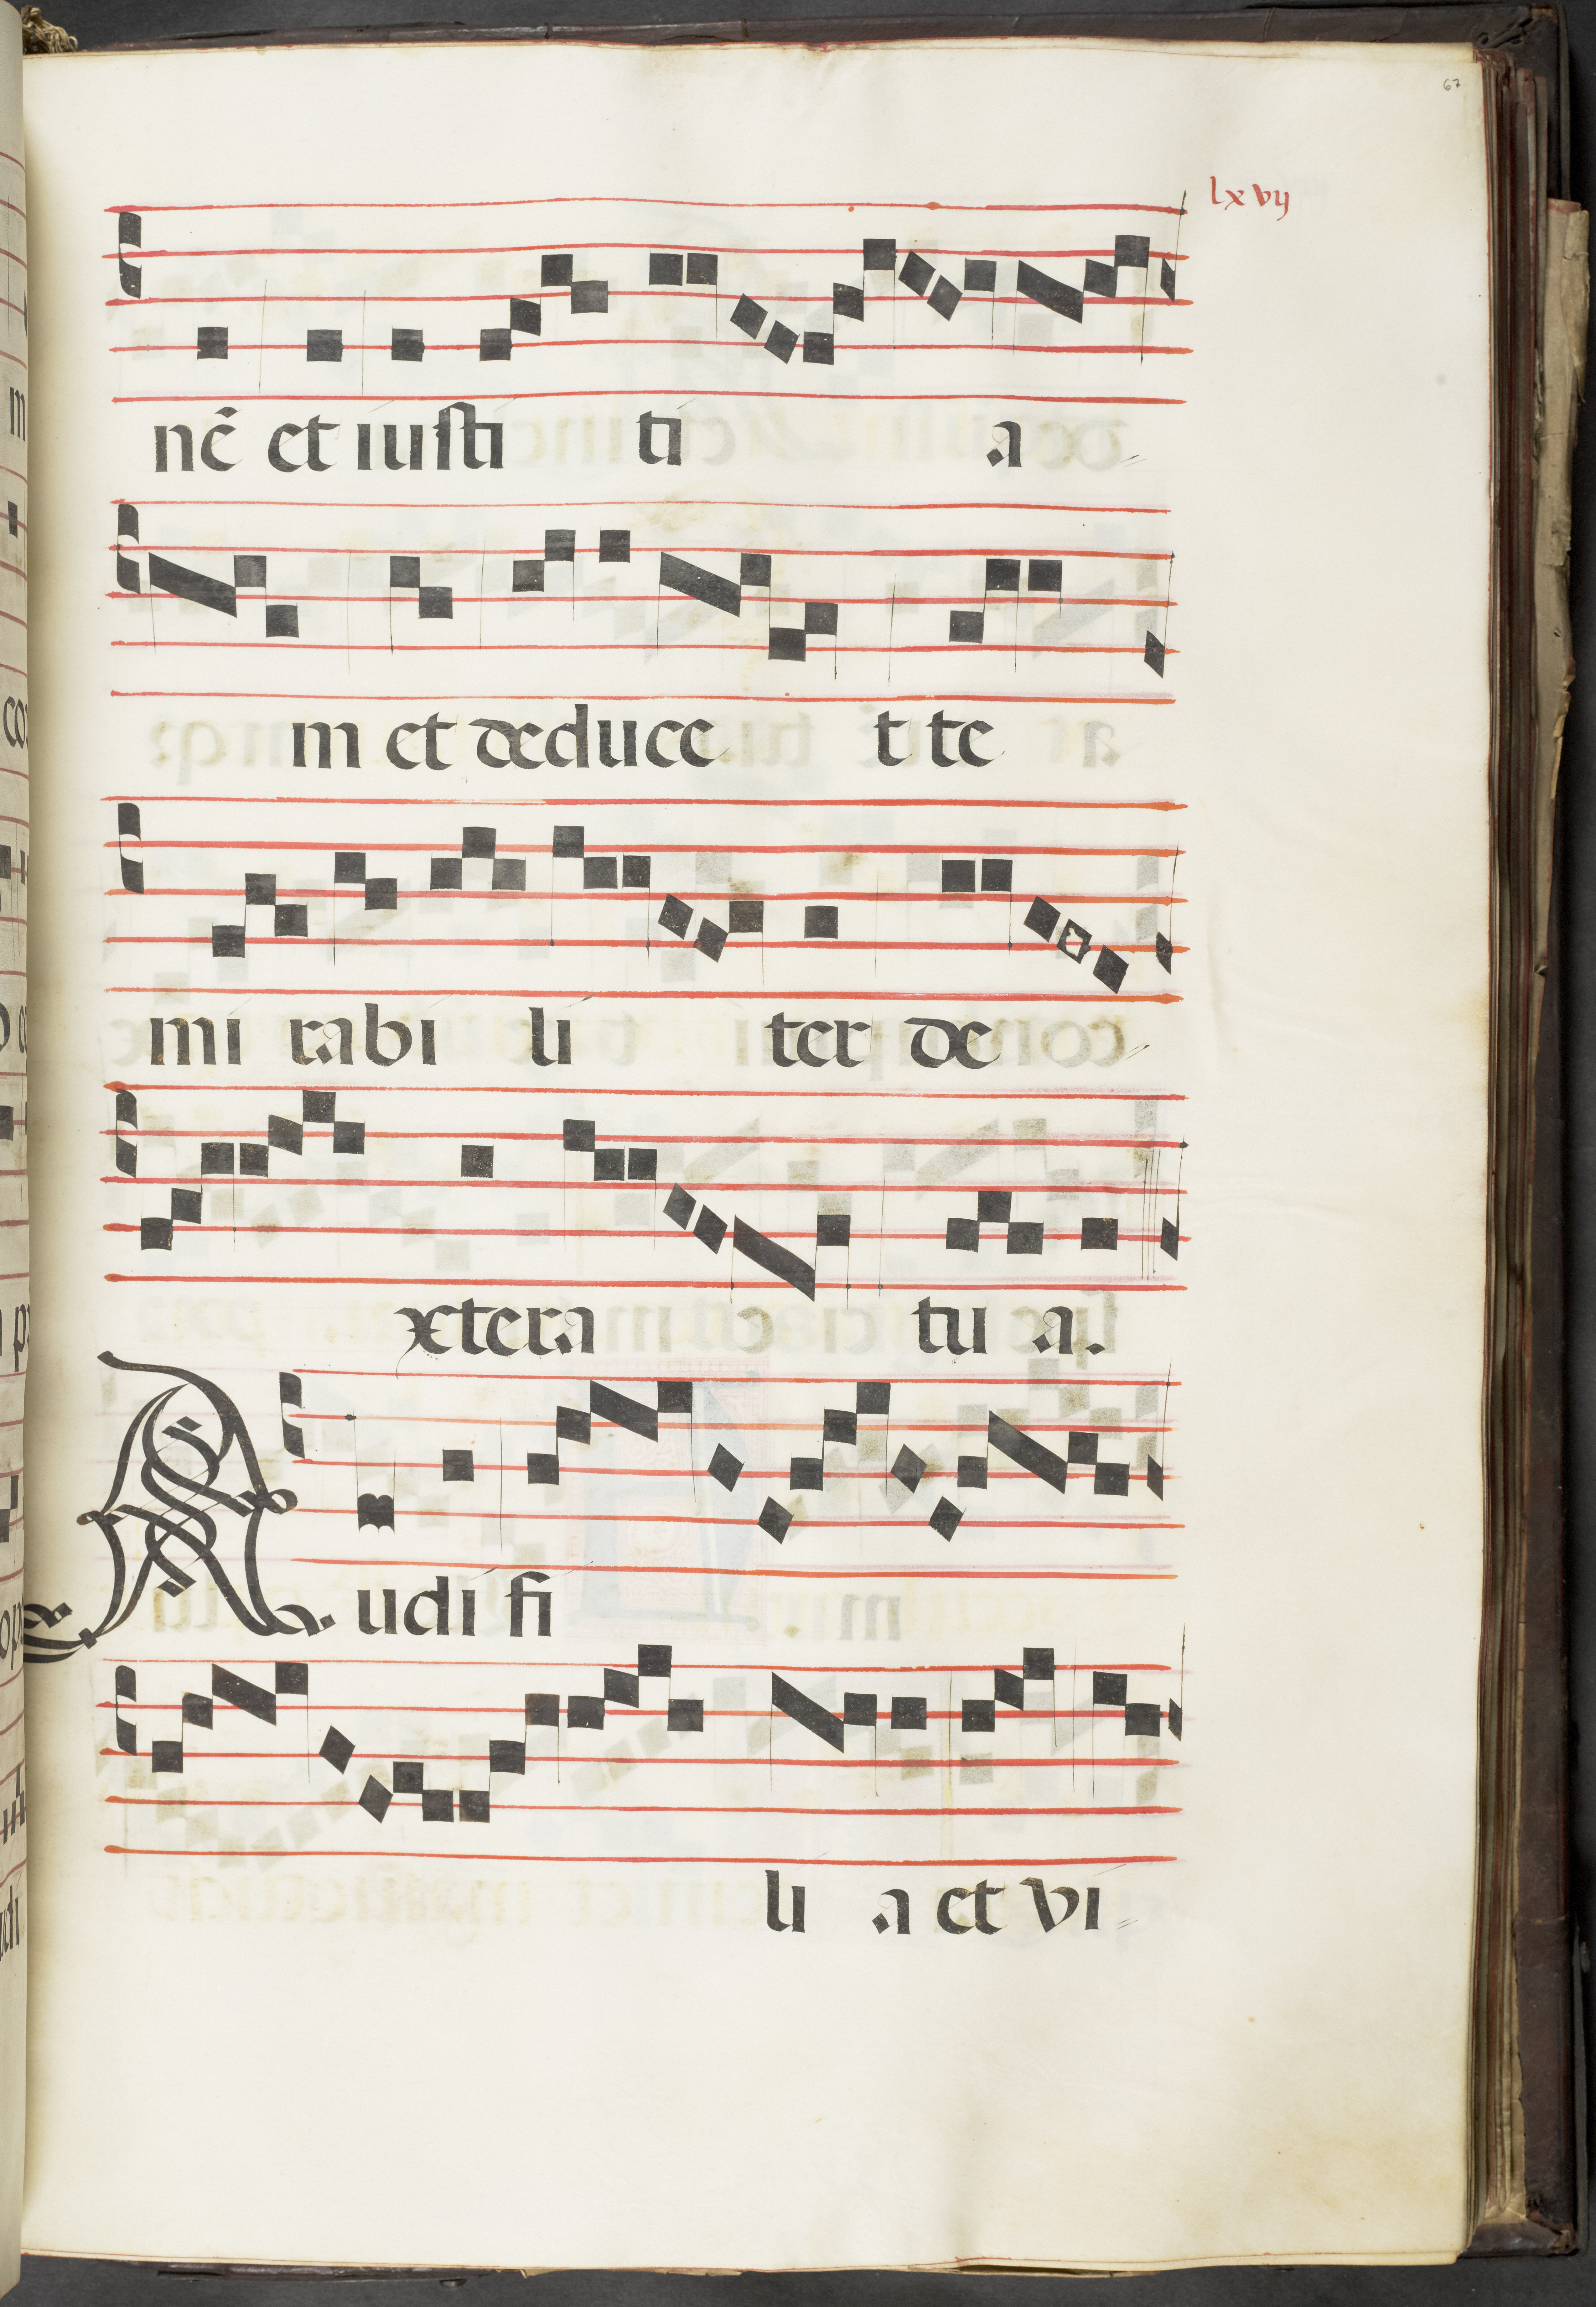 67
lxvij
nẽ et iusti ti a
m et deduce t te
mi rabi li ter de
xtera tu a.
Audi fi
li a et vi